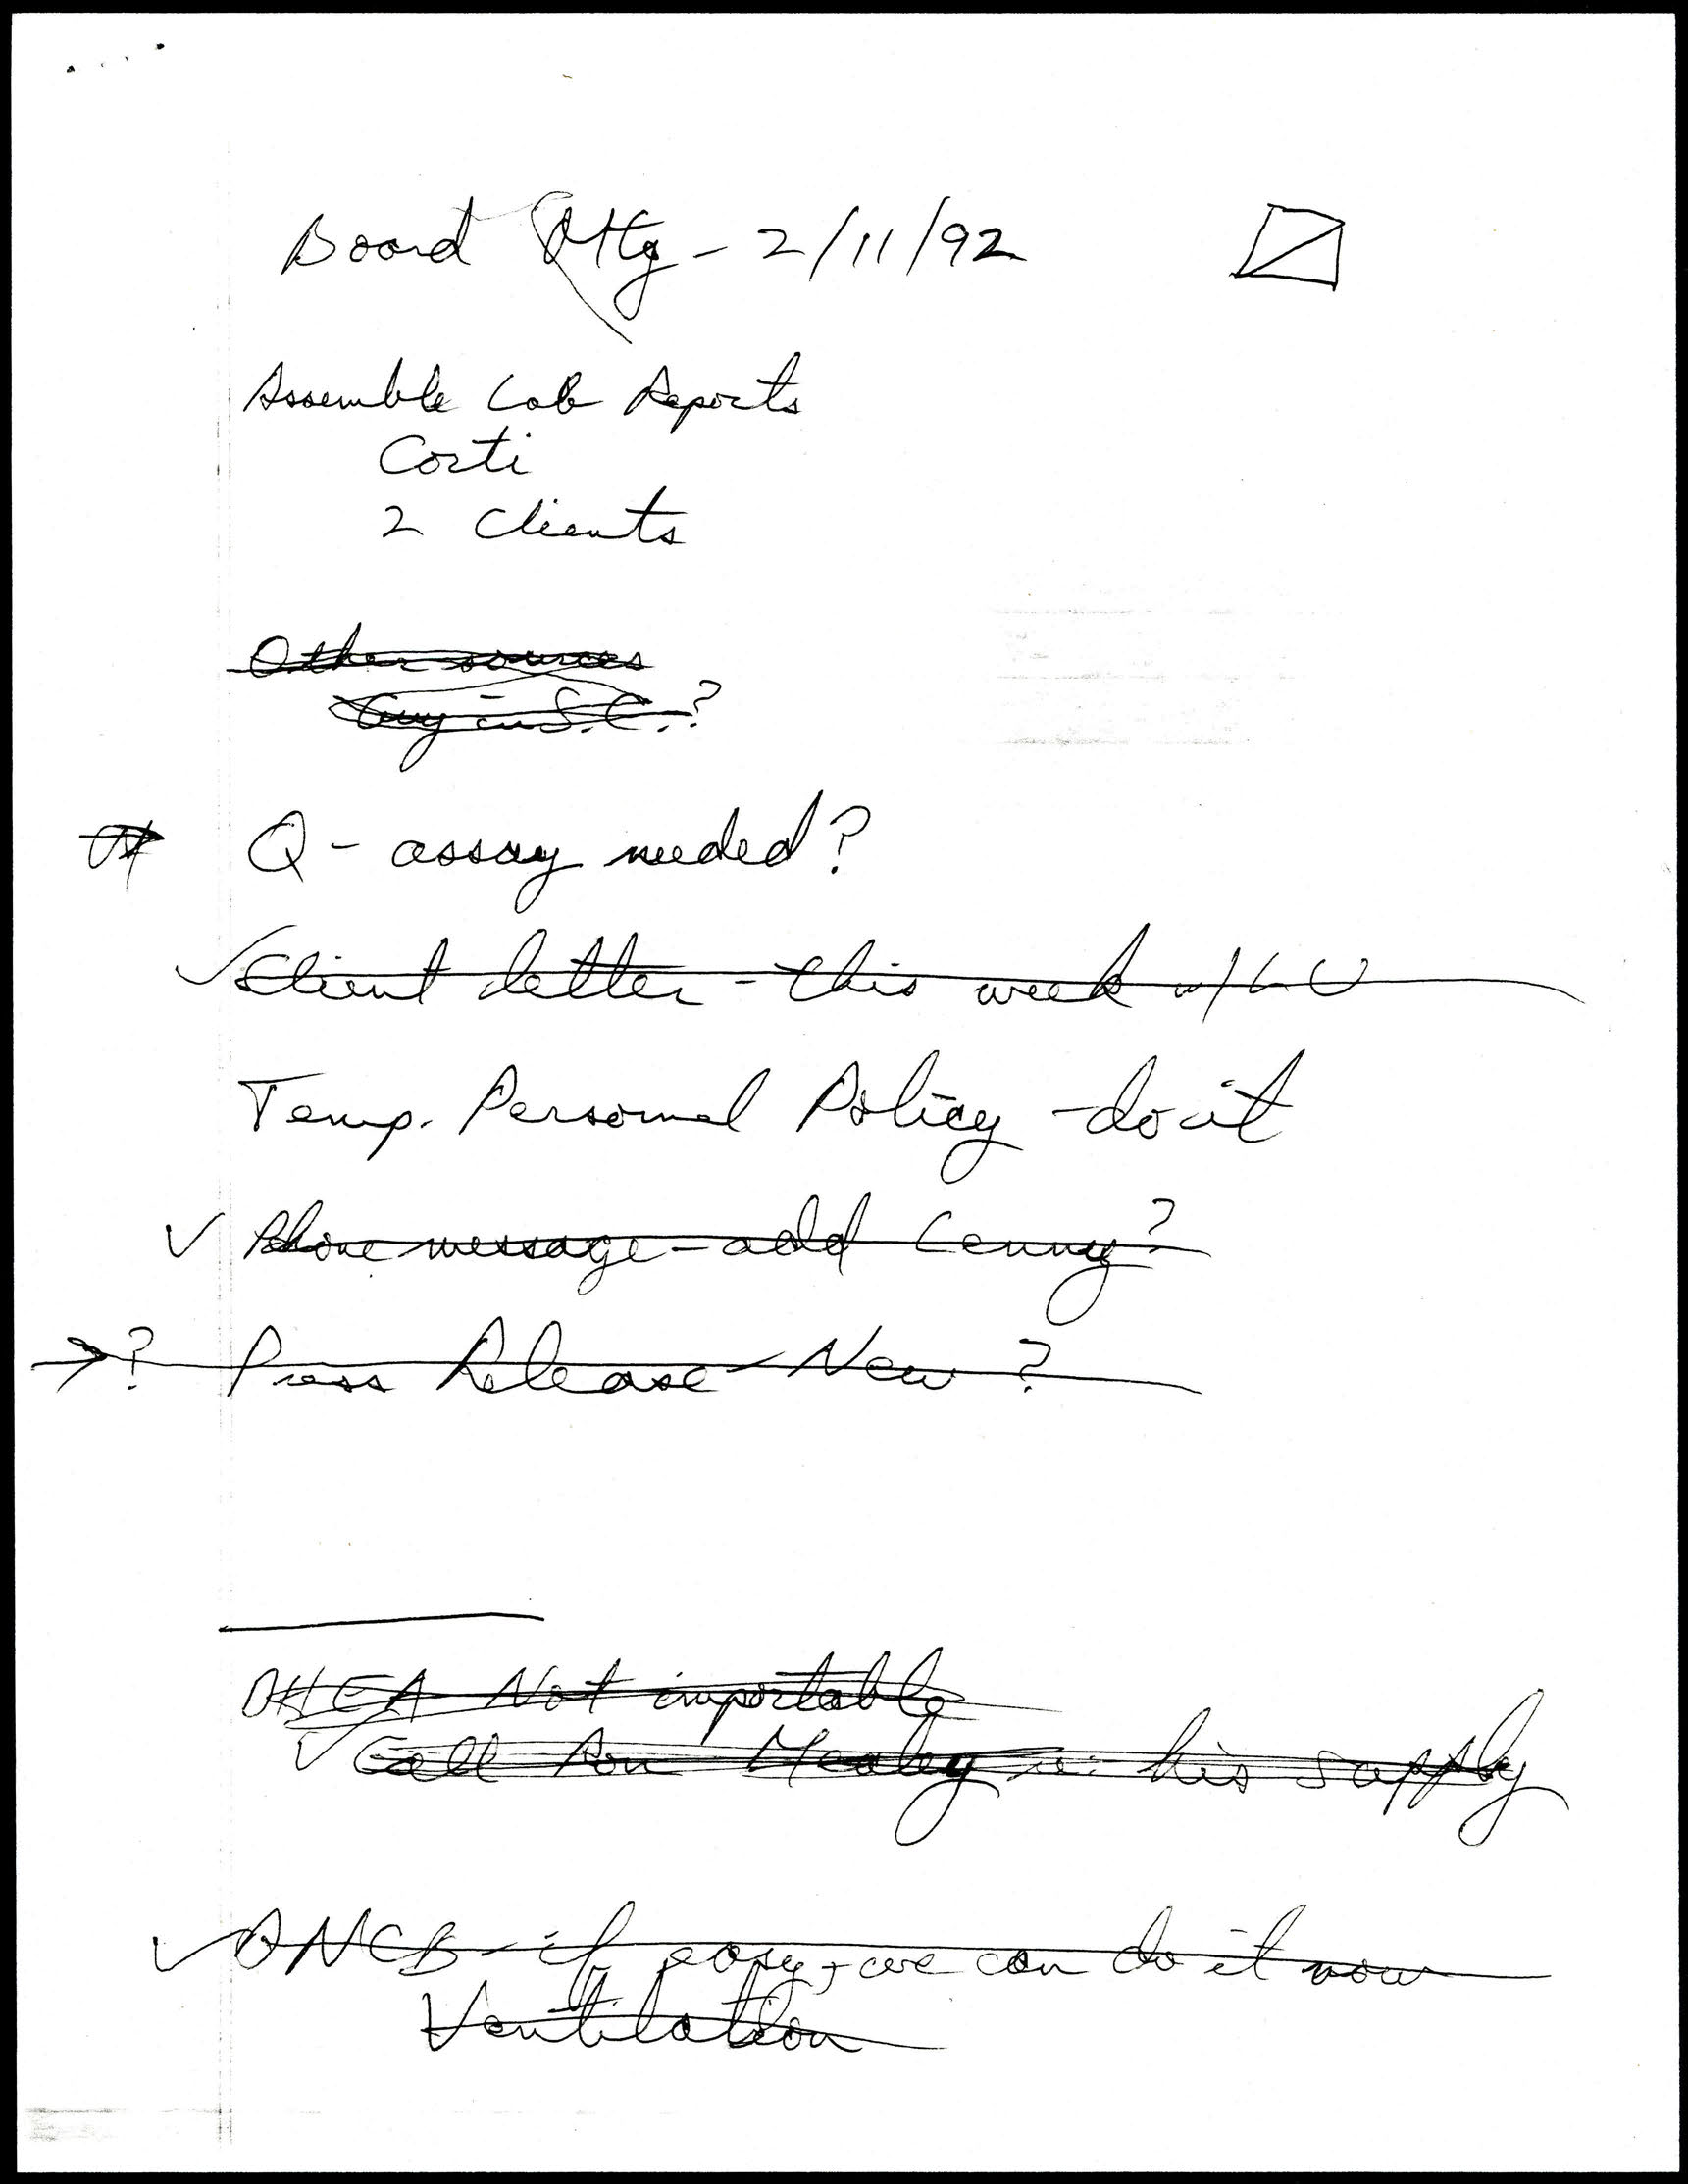 Board Mtg - 2/11/92
Assemble Lab Reports
Corti
2 Clients
Other sources
Guy in S.C.?
Q - assay needed?
✓ Client letter - this week w/
Temp. Personnel Policy - do it
✓ Phone message - add Lenny?
→ ? Press Release - New?
DHEA Not importable
✓ Call Ron re: his supply
✓ DNCB - if easy, we can do it now
Ventilation